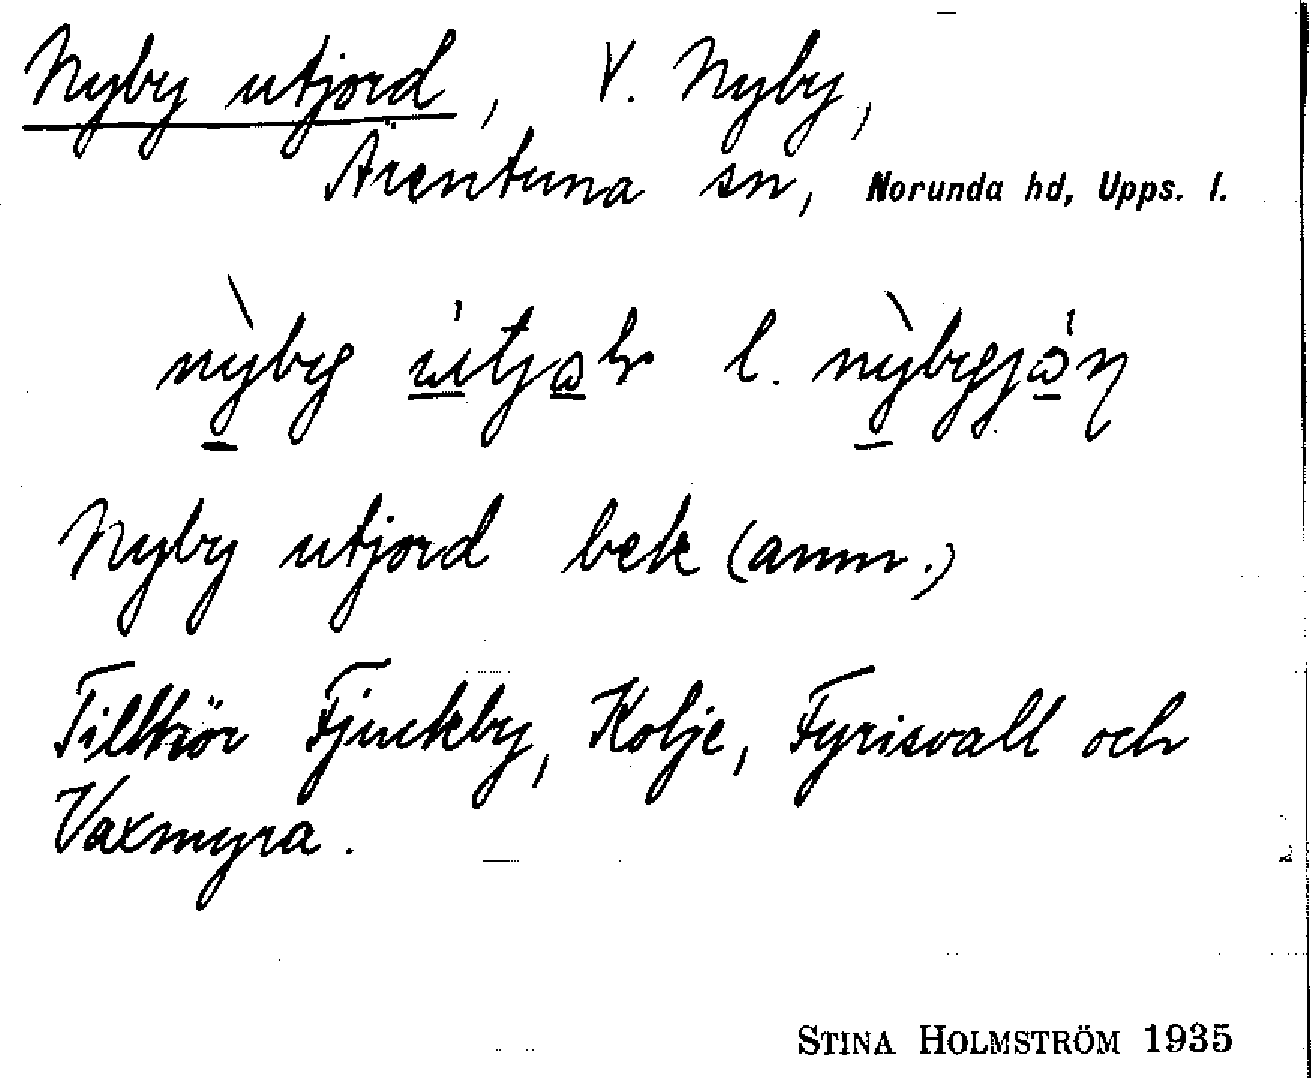 Nyby utjord, V. Nyby,
Ärentuna sn, Norunda hd, Upps. l.
l.
Nyby utjord bek (anm.)
Tillhör Fjuckby, Kolje, Fyrisvall och
Vaxmyra.
STINA HOLMSTRÖM 1935